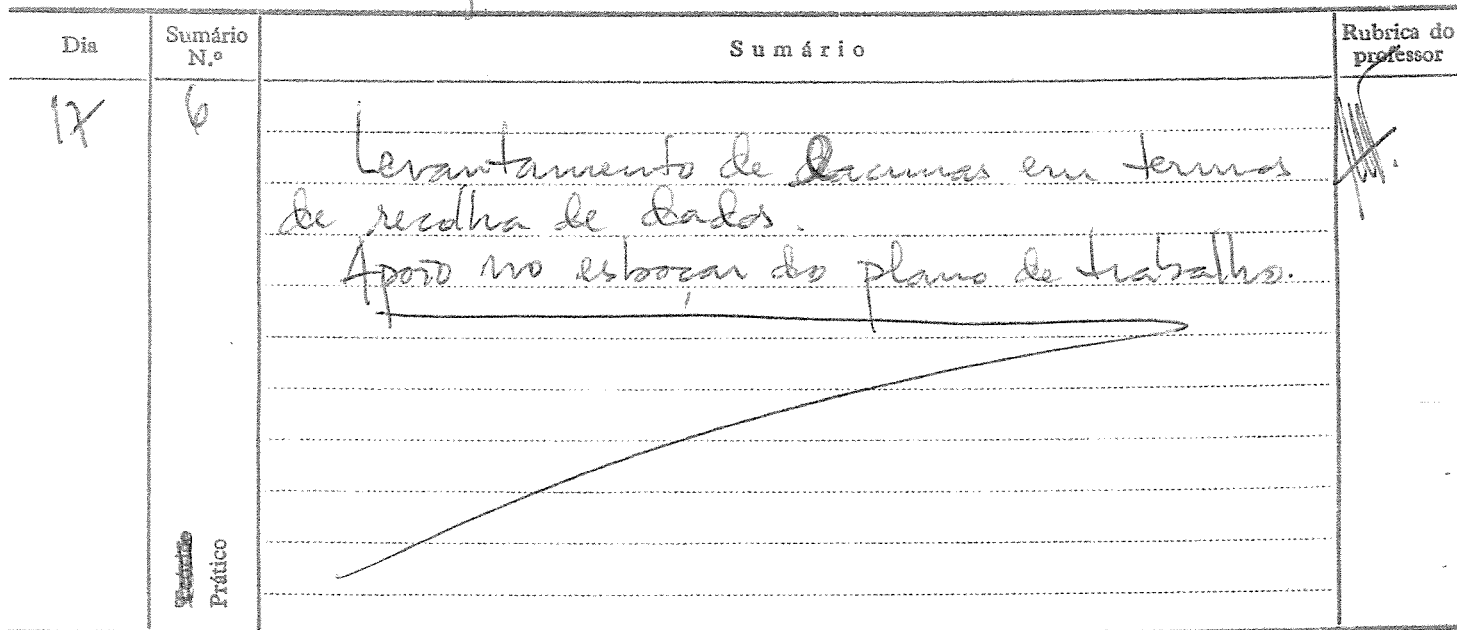 Dia Sumário N.º Sumário Rubrica do professor
17 6
Levantamento de lacunas em termos
de recolha de dados.
Apoio no esboçar do plano de trabalho.
Prático